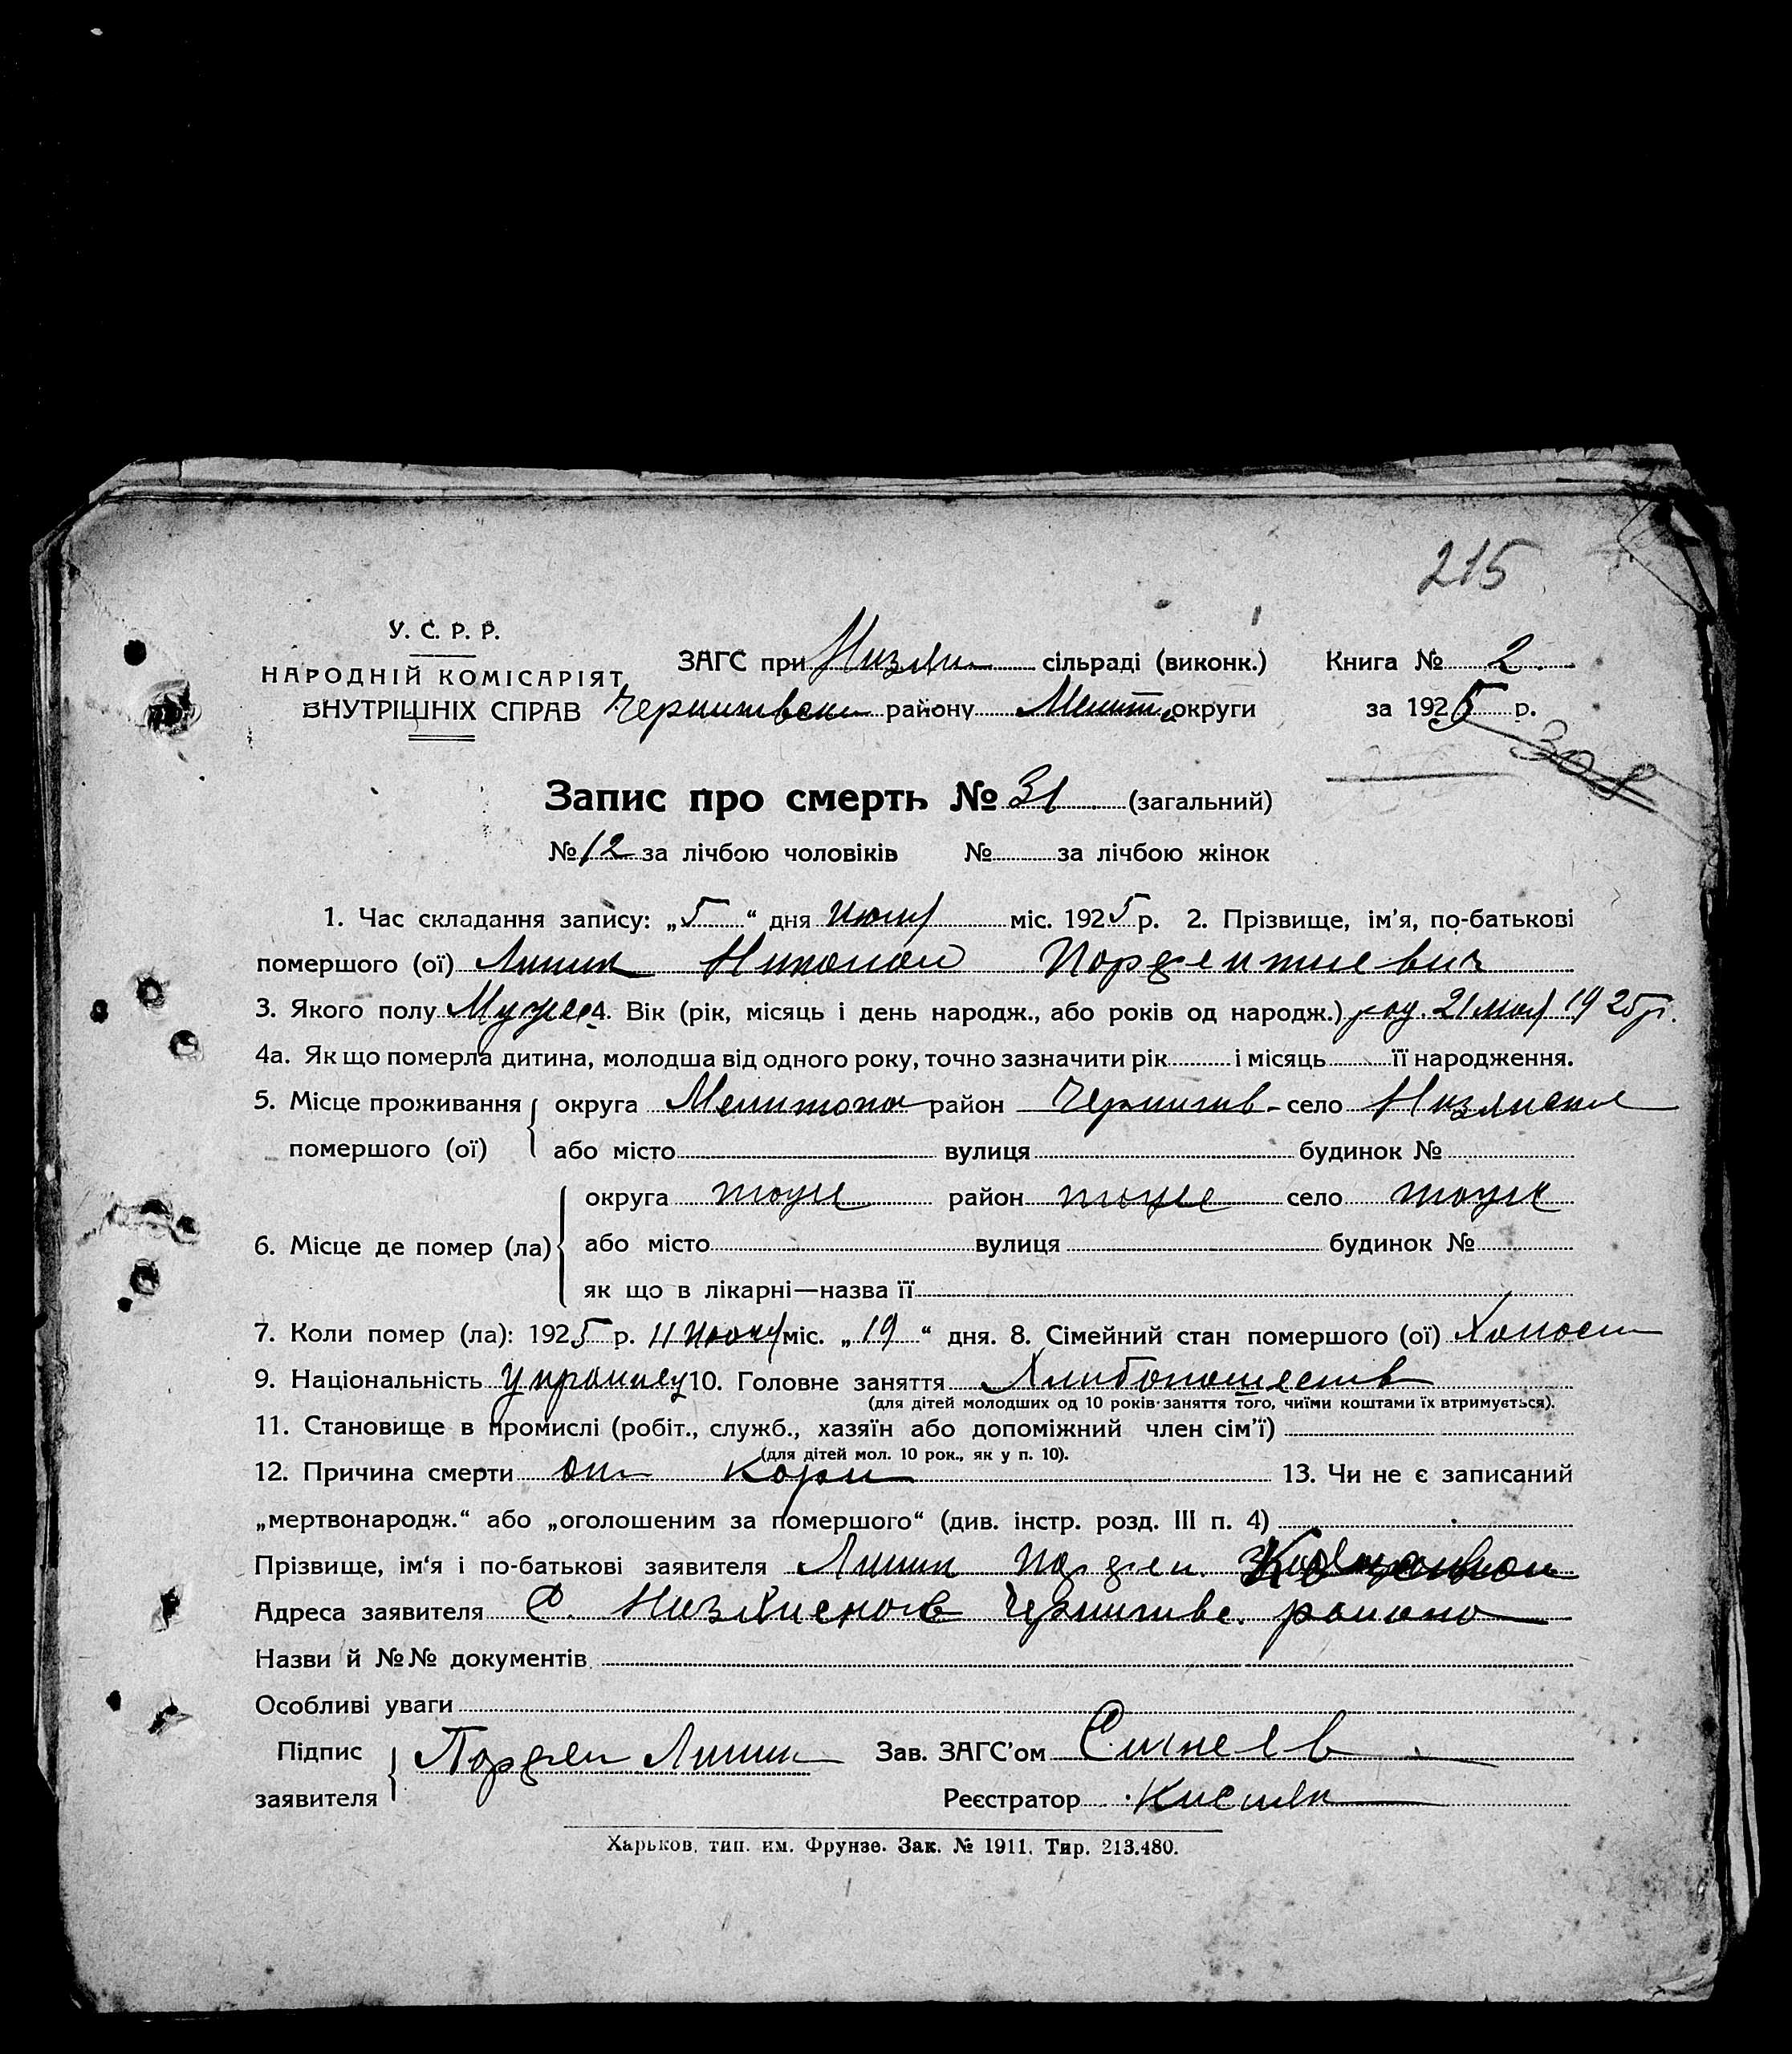 215
У. С. Р. Р.
НАРОДНІЙ КОМІСАРІЯТ
ВНУТРІШНІХ СПРАВ
ЗАГС при Низян сільраді (виконк.) Книга № 2.
району Мелит. округи за 1925 р.
308
Запис про смерть № 31 (загальний)
№ 12 за лічбою чоловіків № за лічбою жінок
1. Час складання запису: „5“ дня июля міс. 1925 р. 2. Прізвище, ім'я, по-батькові
помершого (ої) Линик Николай
3. Якого полу Мужс. 4. Вік (рік, місяць і день народж., або років од народж.) род. 21 мая 1925 г.
4а. Як що померла дитина, молодша від одного року, точно зазначити рік і місяць її народження.
5. Місце проживання округа Мелитопол район Чернигив- село
помершого (ої) або місто вулиця будинок №
округа тоже район тоже село тоже
6. Місце де помер (ла) або місто вулиця будинок №
як що в лікарні—назва її
7. Коли помер (ла): 1925 р. Июня міс. „19“ дня. 8. Сімейний стан помершого (ої) Холост
9. Національність 10. Головне заняття
(для дітей молодших од 10 років-заняття того, чиїми коштами їх втримується).
11. Становище в промислі (робіт., служб., хазяїн або допоміжний член сім'ї)
(для дітей мол. 10 рок., як у п. 10).
12. Причина смерти от кори 13. Чи не є записаний
„мертвонародж.“ або „оголошеним за помершого“ (див. інстр. розд. III п. 4)
Прізвище, ім'я і по-батькові заявителя Линик
Адреса заявителя С. района
Назви й №№ документів
Особливі уваги
Підпис
заявителя Линик Зав. ЗАГС'ом
Реєстратор
Харьков, тип. им. Фрунзе. Зак. № 1911. Тир. 213.480.